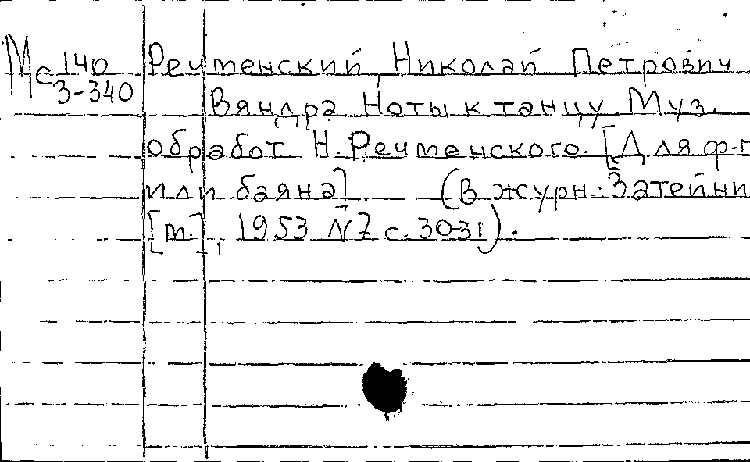 Мс 140/3-340 Речменский Николай Петрович
Вяндра Ноты к танцу Муз.
обработ Н. Речменского. [Для ф-п
или баяна] (В журн.: Затейни
[м.], 1953 №7 с. 30-31).